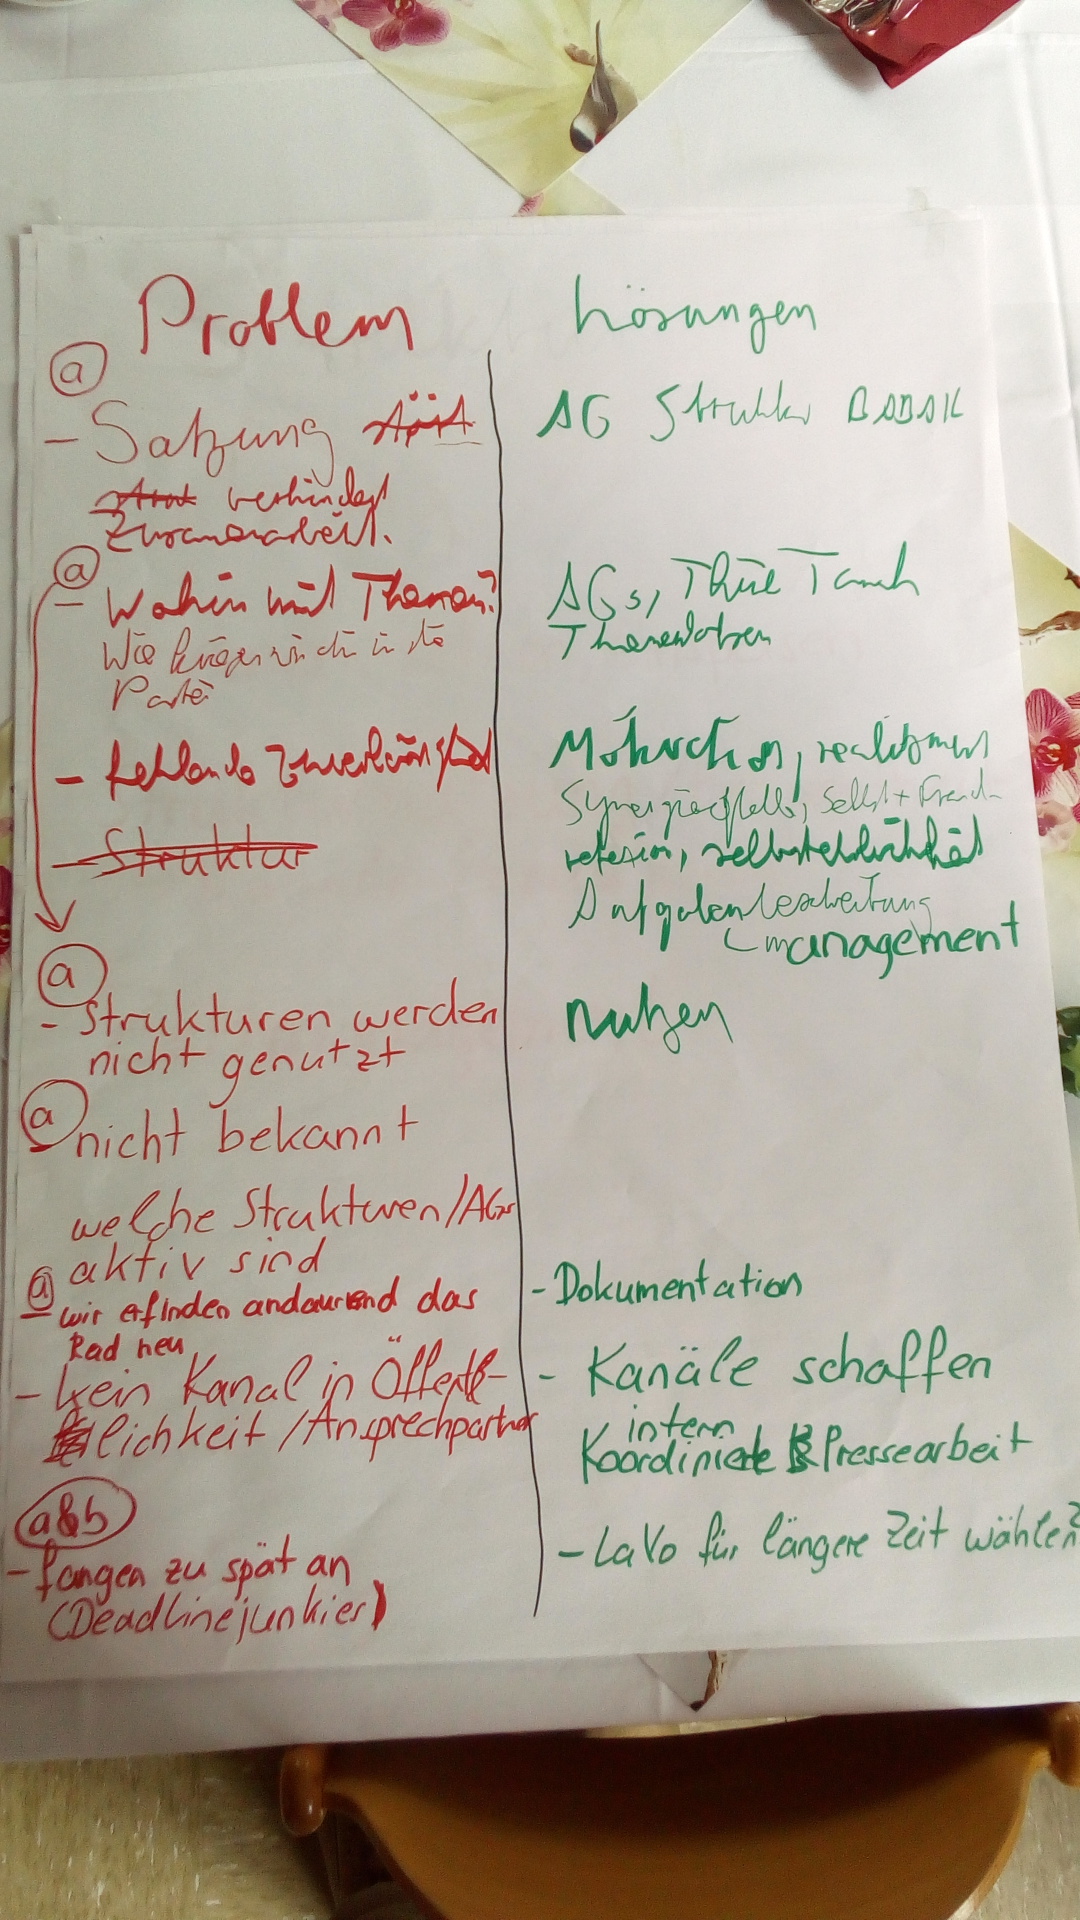 Problem
Lösungen
a
- Satzung
AG Struktur BABAK
verhindert
Zusammenarbeit.
a
- Wohin mit Themen?
AGs, Think Tank
Themen
Wie kriegen wir die in die
Partei
- fehlende Zuverlässigkeit
Motivation, realitsmus
Synergieeffekte, Selbst + Fremd-
reflexion,
- Struktur
Aufgaben
management
a
- Strukturen werden
nicht genutzt
nutzen
a
- nicht bekannt
welche Strukturen/AGs
aktiv sind
a
- wir erfinden andaurend das
Rad neu
- Dokumentation
- kein Kanal in Öffent-
lichkeit / Ansprechpartner
- Kanäle schaffen
intern
Koordinierte Pressearbeit
a&b
- fangen zu spät an
(Deadlinejunkies)
- LaVo für längere Zeit wählen?